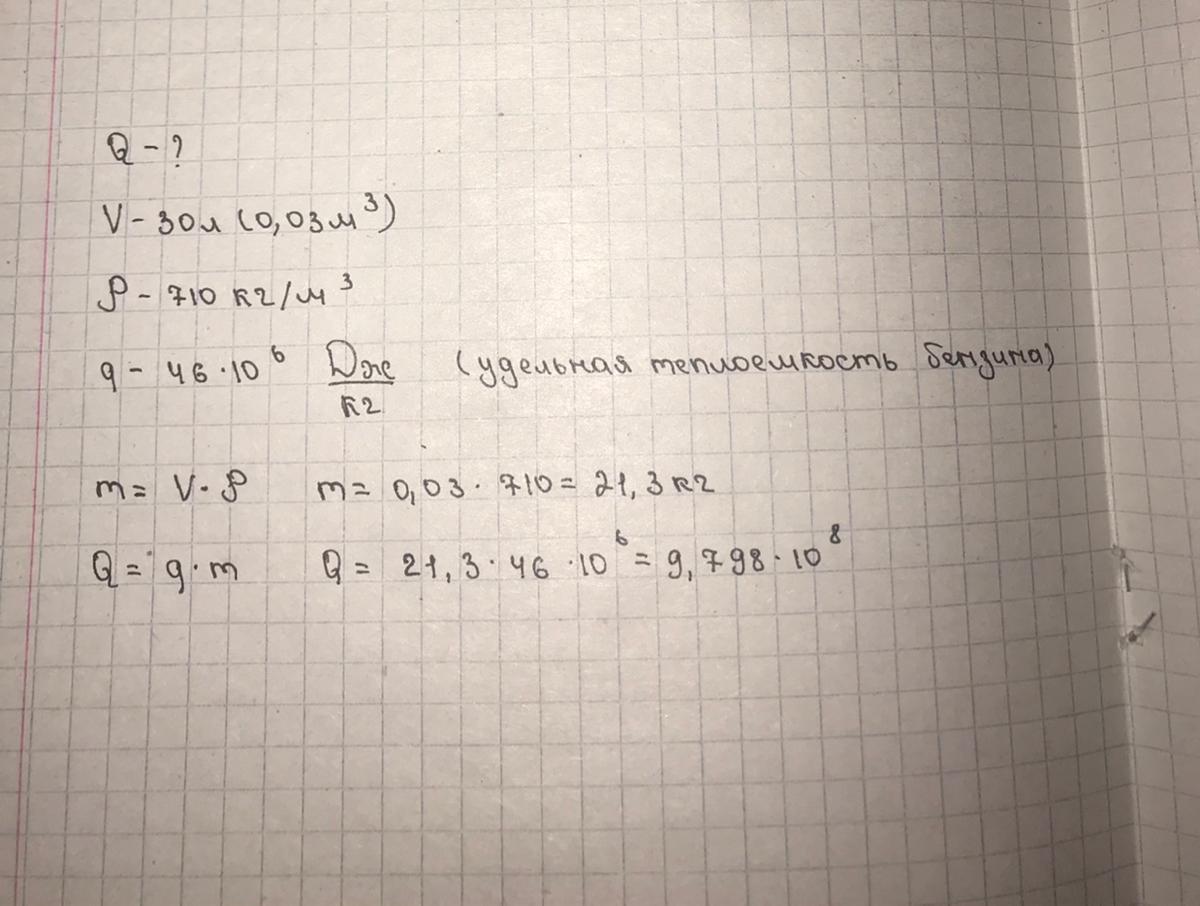 Q - ?
V - 30 л (0,03 м³)
ρ - 710 кг/м³
q - 46 · 10⁶ Дж/кг (удельная теплоемкость бензина)
m = V · ρ m = 0,03 · 710 = 21,3 кг
Q = q · m Q = 21,3 · 46 · 10⁶ = 9,798 · 10⁸